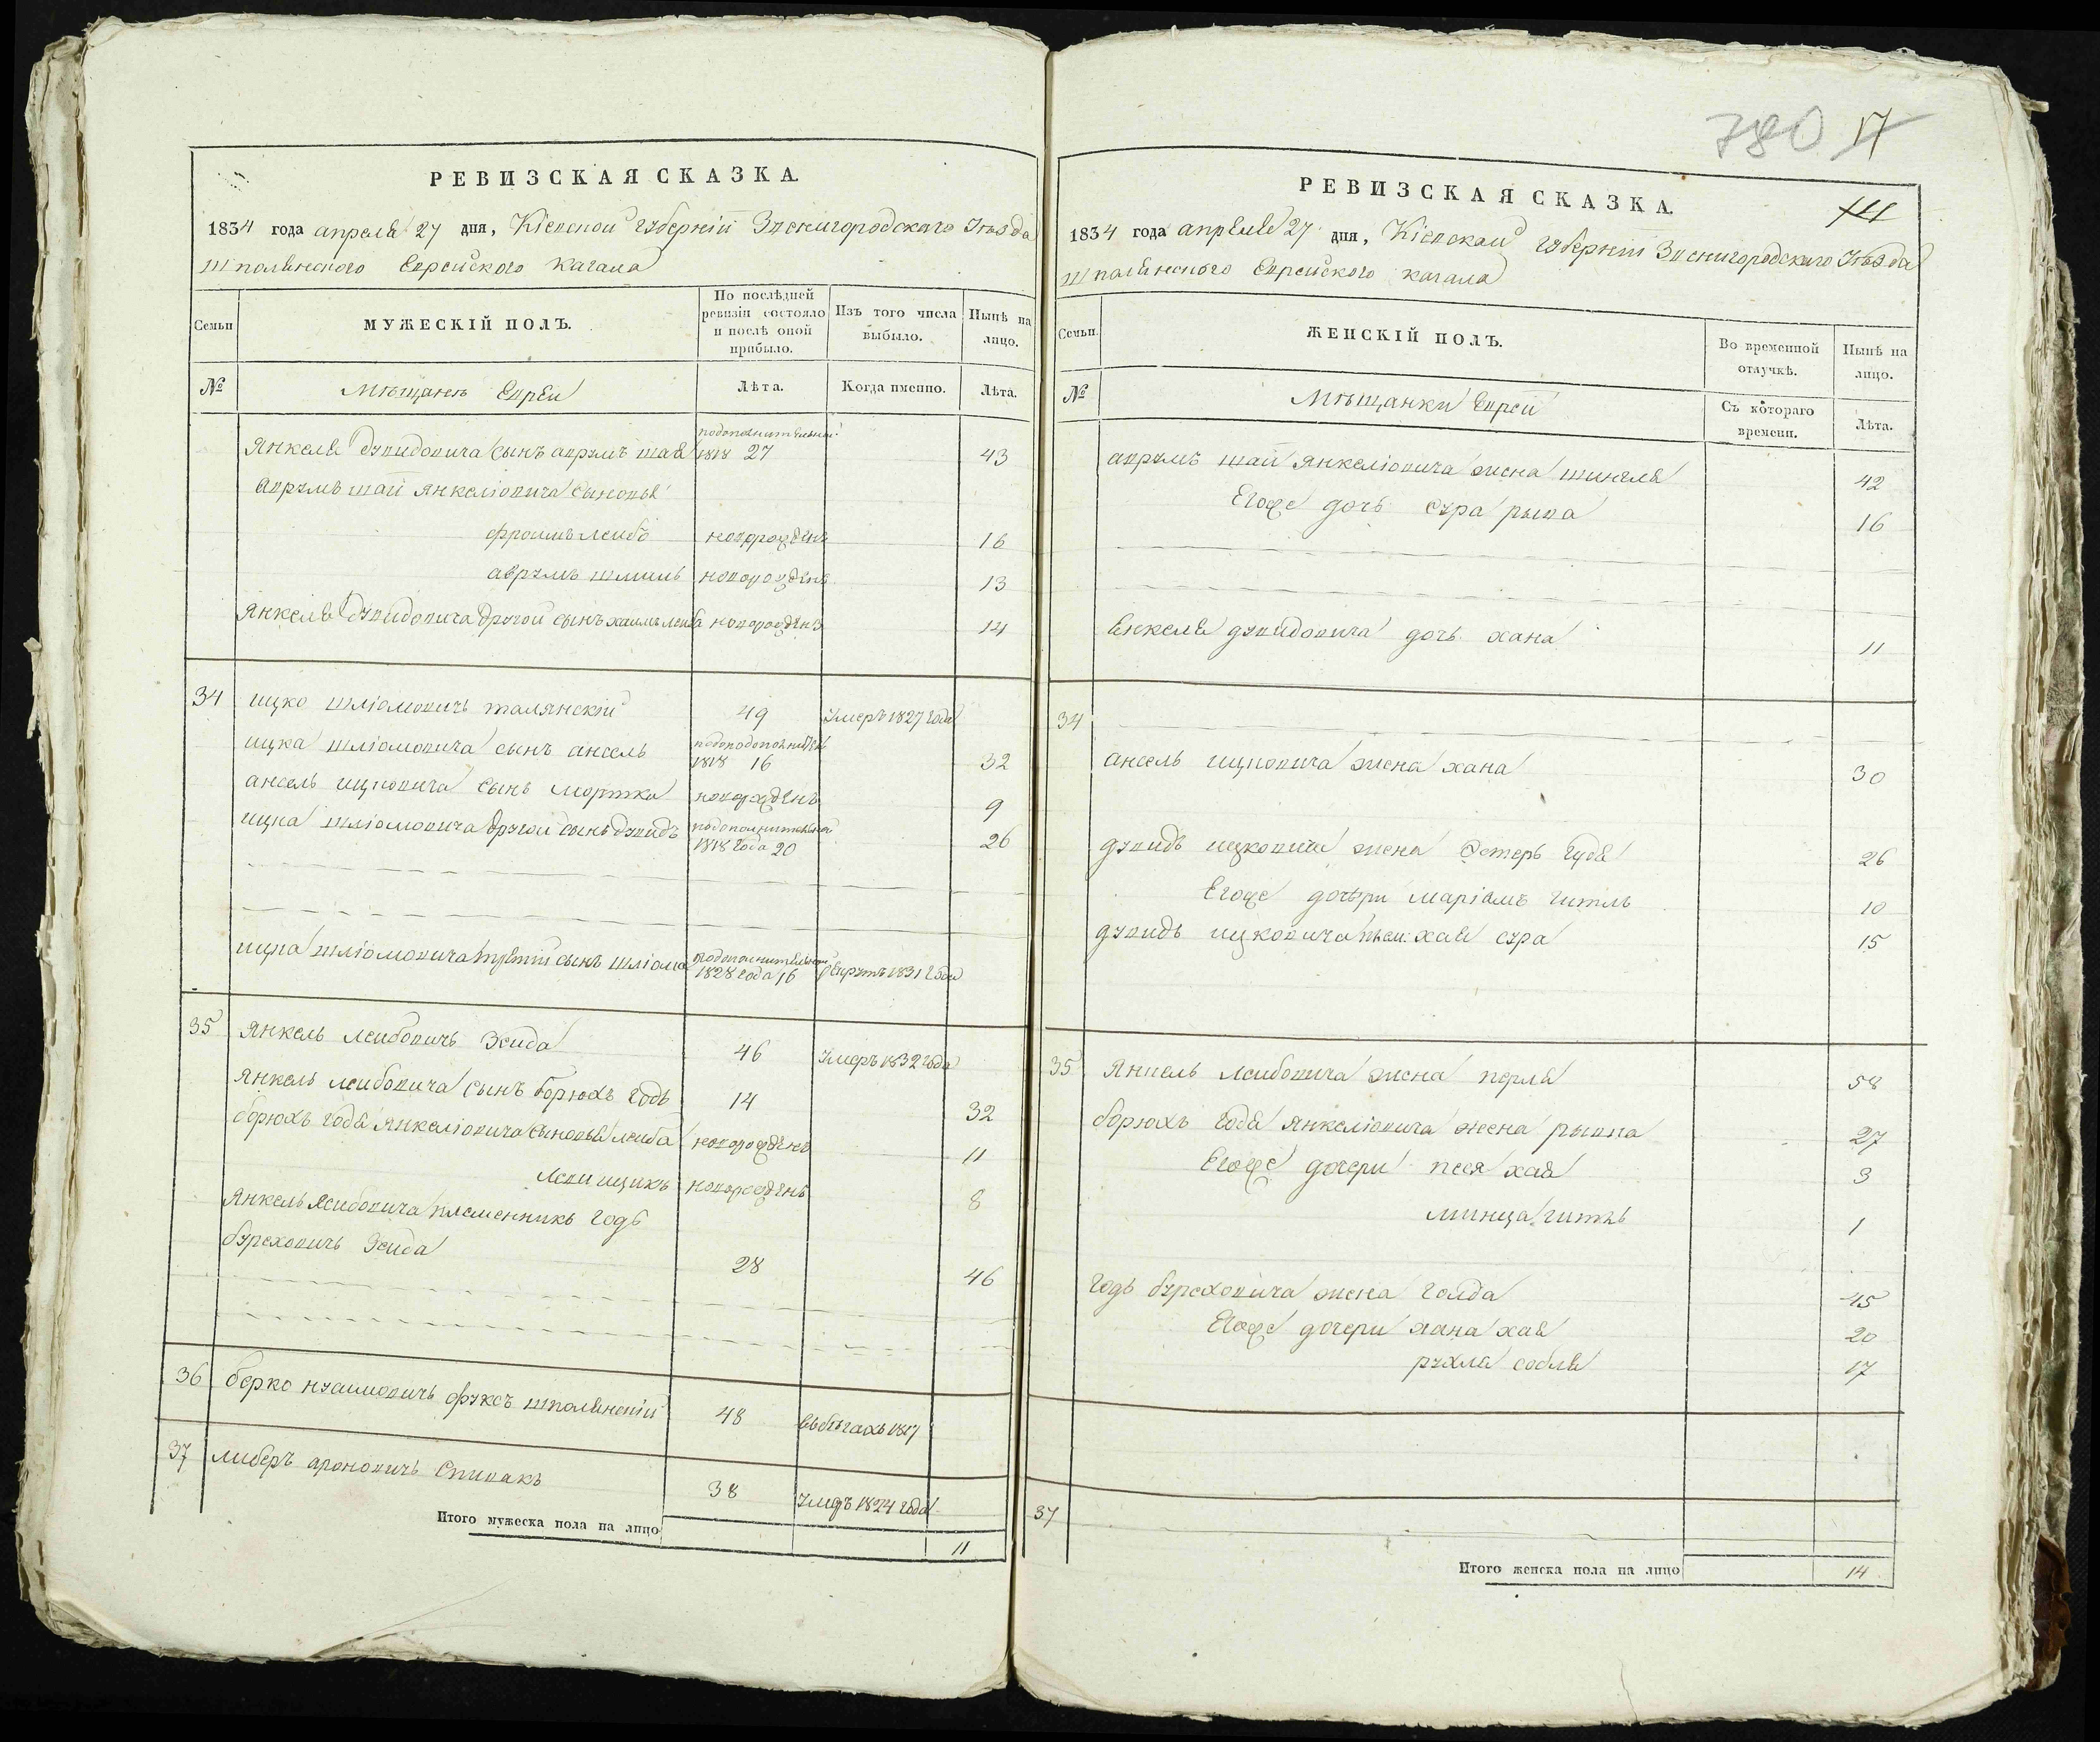 РЕВИЗСКАЯ СКАЗКА.
1834 года апреля 27 дня, Кіевской губерніи Звенигородского Уѣзда
Шполянского Еврейского кагала
Семьи
МУЖЕСКІЙ ПОЛЪ.
По послѣдней ревизіи состояло и послѣ оной прибыло.
Изъ того числа выбыло.
Нынѣ на лицо.
№
Мѣщанѣ Евреи
Лѣта.
Когда именно.
Лѣта.
Янкеля Дувидовича сынъ аврумъ шая 1818 27 43
Аврумъ шаи янкеліовича сыновья
фроимъ леибъ новорожденъ 16
аврумъ новорожденъ 13
Янкеля Дувидовича другой сынъ хаимъ леиба новорожденъ 14
34 ицко шліомовичъ талянскій 49 Умеръ 1827 года
ицка шліомовича сынъ ансель 1818 16 32
ансель ицковича сынъ мортко новорожденъ 9
ицка шліомовича другой сынъ дувидъ 1818 года 20 26
ицка шліомовича третій сынъ шліома 1828 года 16 рекрутъ 1831 года
35 Янкель леибовичъ Зеида 46 Умеръ 1832 года
Янкель леибовича сынъ борюхъ годь 14 32
борюхъ годя янкеліовича сыновья леиба новорожденъ 11
леви ицикъ новорожденъ 8
Янкель леибовича племенникъ годь
буреховичъ Зеида 28 46
36 берко нухимовичъ фуксъ шполянскій 48 въ бѣгахъ 1827
37 либеръ ароновичъ Спивакъ 38 Умеръ 1824 года
Итого мужеска пола на лицо 11
780 17
РЕВИЗСКАЯ СКАЗКА.
1834 года апреля 27 дня, Кіевской губерніи Звенигородского Уѣзда
Шполянского Еврейского кагала
Семьи.
ЖЕНСКІЙ ПОЛЪ.
Во временной отлучкѣ.
Нынѣ на лицо.
№
Мѣщанки Евреи
Съ котораго времени.
Лѣта.
аврумъ шаи янкеліовича жена 42
Егоже дочь сура рыва 16
Енкеля дувидовича дочь хана 11
34
ансель ицковича жена хана 30
дувидъ ицковича жена Эстеръ 26
Егоже дочери маріамъ гитль 10
дувидъ ицковича хая сура 15
35 Янкель леибовича жена перля 58
борюхъ годя янкеліовича жена рывка 27
Егоже дочери песя хая 3
минца гитль 1
годь буреховича жена голда 45
Егоже дочери хана хая 20
рухля собля 17
37
Итого женска пола на лицо 14